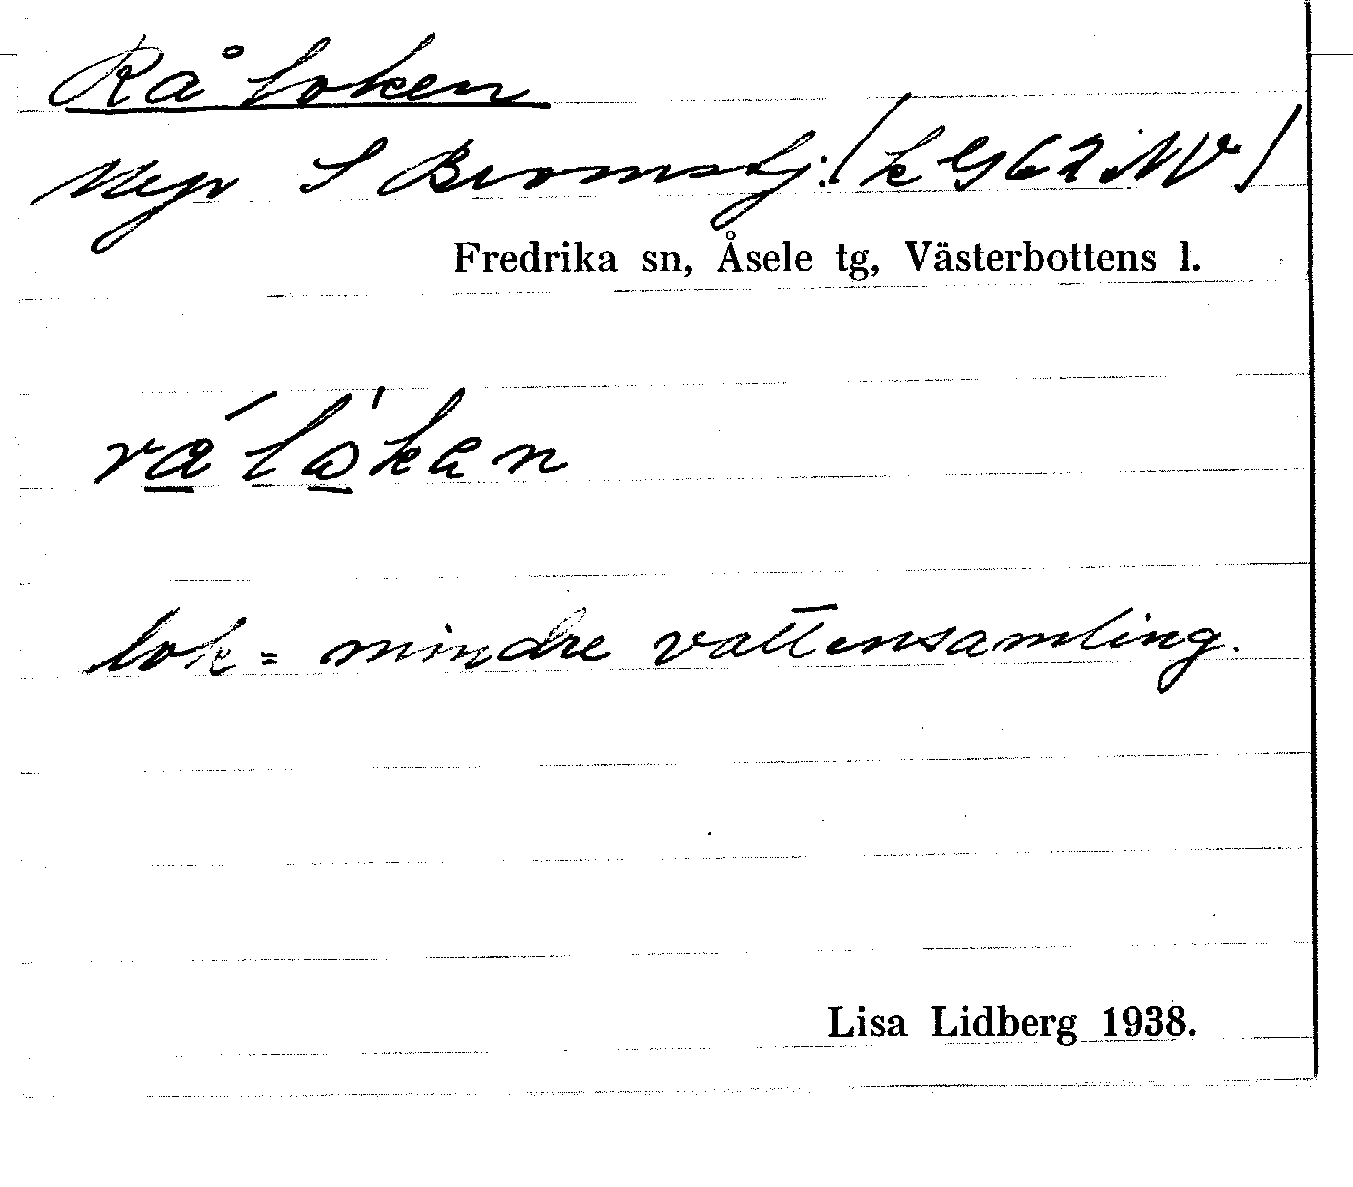 Råloken
Myr S Bromsj. (k G62 NV)
Fredrika sn, Åsele tg, Västerbottens l.
lok = mindre vattensamling.
Lisa Lidberg 1938.